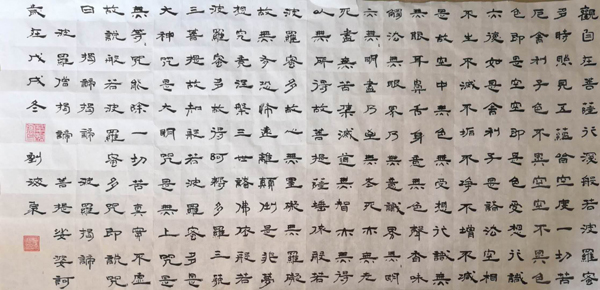 觀自在菩薩行深般若波羅蜜
多時照見五蘊皆空度一切苦
厄舍利子色不異空空不異色
色即是空空即是色受想行識
亦復如是舍利子是諸法空相
不生不滅不垢不淨不增不減
是故空中無色無受想行識
無眼耳鼻舌身意無色聲香味
觸法無眼界乃至無意識界無無明
亦無無明盡乃至無老死亦無老
死盡無苦集滅道無智亦無得
以無所得故菩提薩埵依般若
波羅蜜多故心無罣礙無罣礙
故無有恐怖遠離顛倒夢
想究竟涅槃三世諸佛依般若
波羅蜜多故得阿耨多羅三藐
三菩提故知般若波羅蜜多是
大神咒是大明咒是無上咒是
無等等咒能除一切苦真實不虛
故說般若波羅蜜多咒即說咒
曰揭諦揭諦波羅揭諦
波羅僧揭諦菩提娑婆訶
歲在戊戌冬劉淑